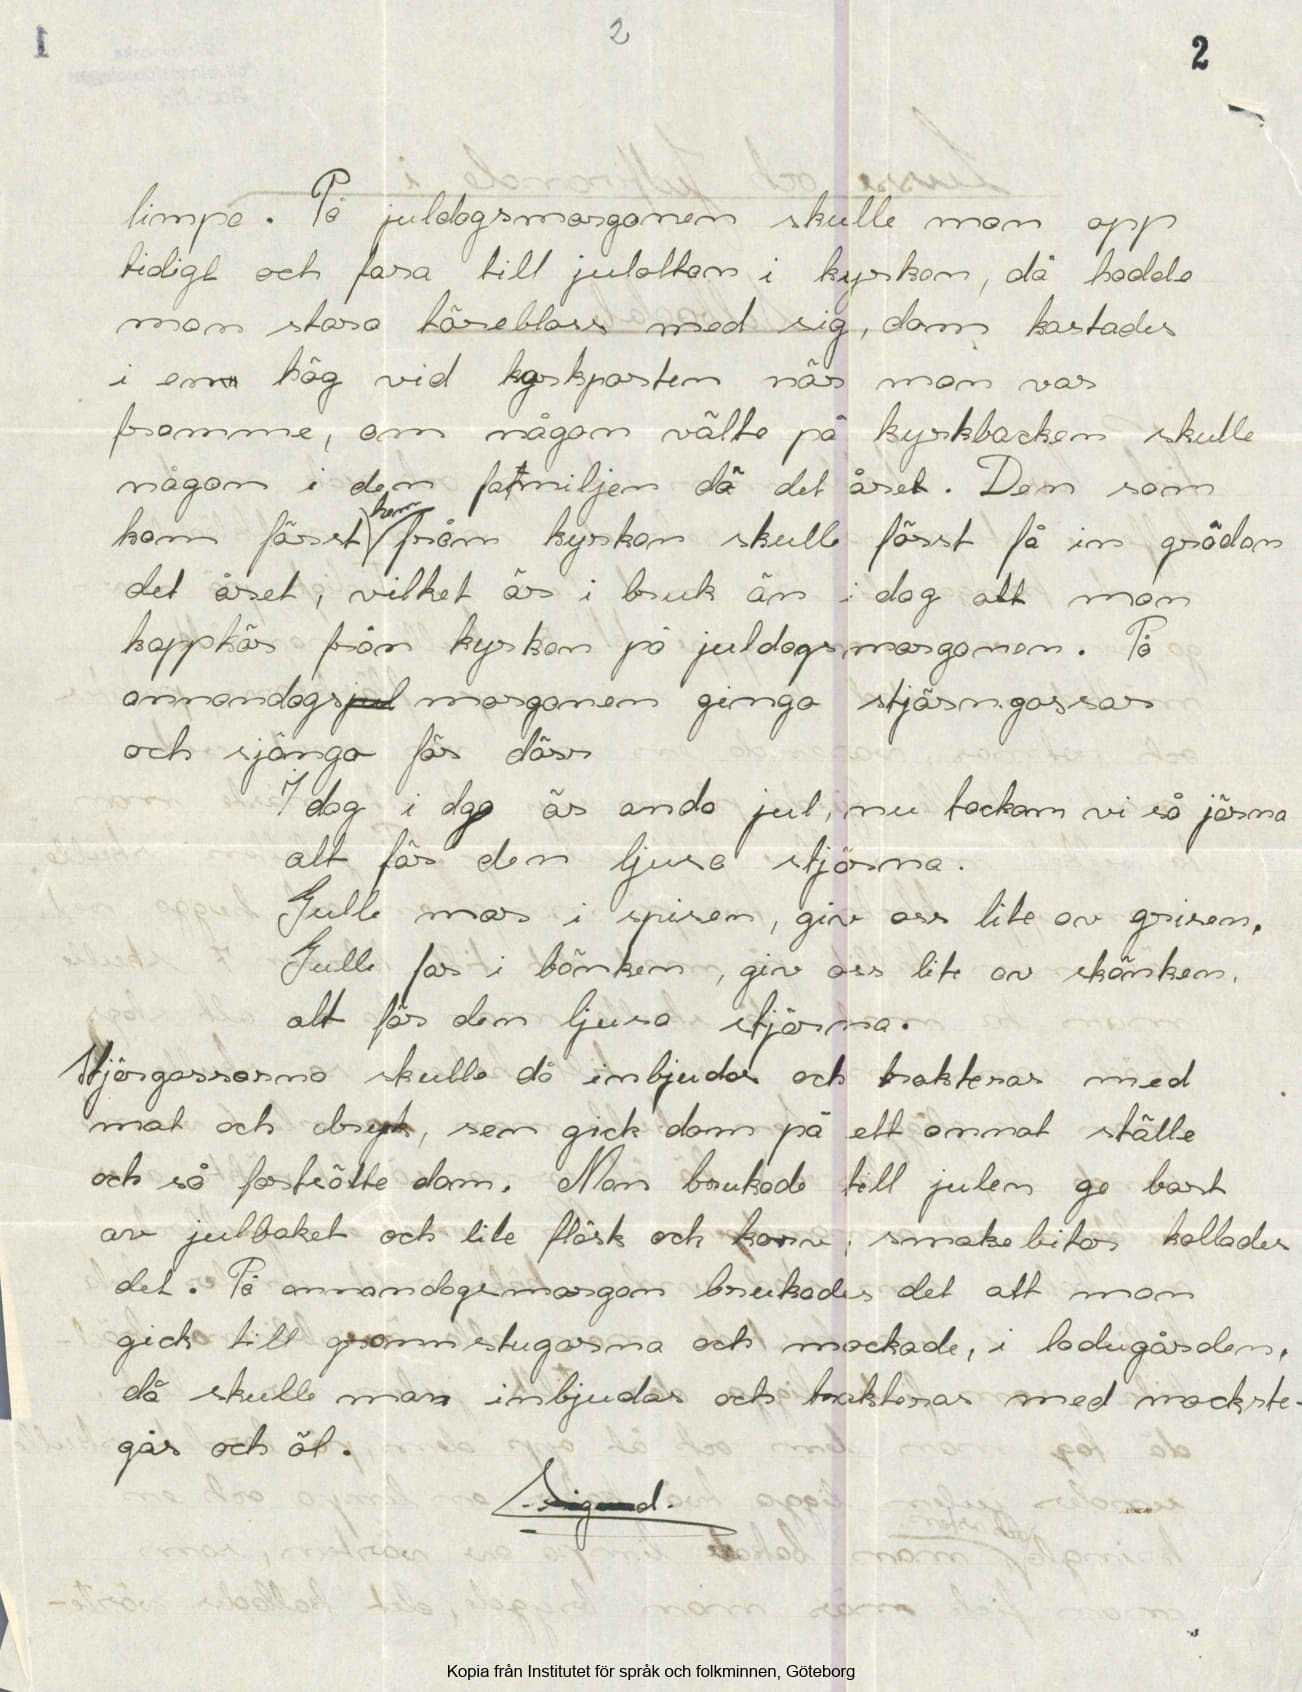 2
2
limpa. På juldagsmorgonen skulle man opp
tidigt och fara till julottan i kyrkan, då hadde
man stora törebloss med sig, dom kastades
i en hög vid kyrkporten när man var
framme, om någon välte på kyrkbacken skulle
någon i den familjen dö det året. Den som
kom först hem från kyrkan skulle först få in grödan
det året, vilket är i bruk än i dag att man
kappkör från kyrkan på juldagsmorgonen. På
annandagsjul morgonen gingo stjärngossar
och sjöngo för dörr
I dag i dag är anda jul, nu tackom vi så järna
allt för den ljusa stjärna.
Gulle mor i spisen, giv oss lite av grisen.
Gulle far i bänken, giv oss lite av skänken,
allt för den ljusa stjärna.
Stjärgossarna skulle då inbjudas och trakteras med
mat och dryck, sen gick dom på ett annat ställe
och så fortsötte dom. Man brukade till julen ge bort
av julbaket och lite fläsk och korv, smakebitar kallades
det. På annandagsmorgon brukades det att man
gick till grannstugorna och mockade, i ladugården,
då skulle man inbjudas och trakteras med mockste-
går och öl.
Kopia från Institutet för språk och folkminnen, Göteborg